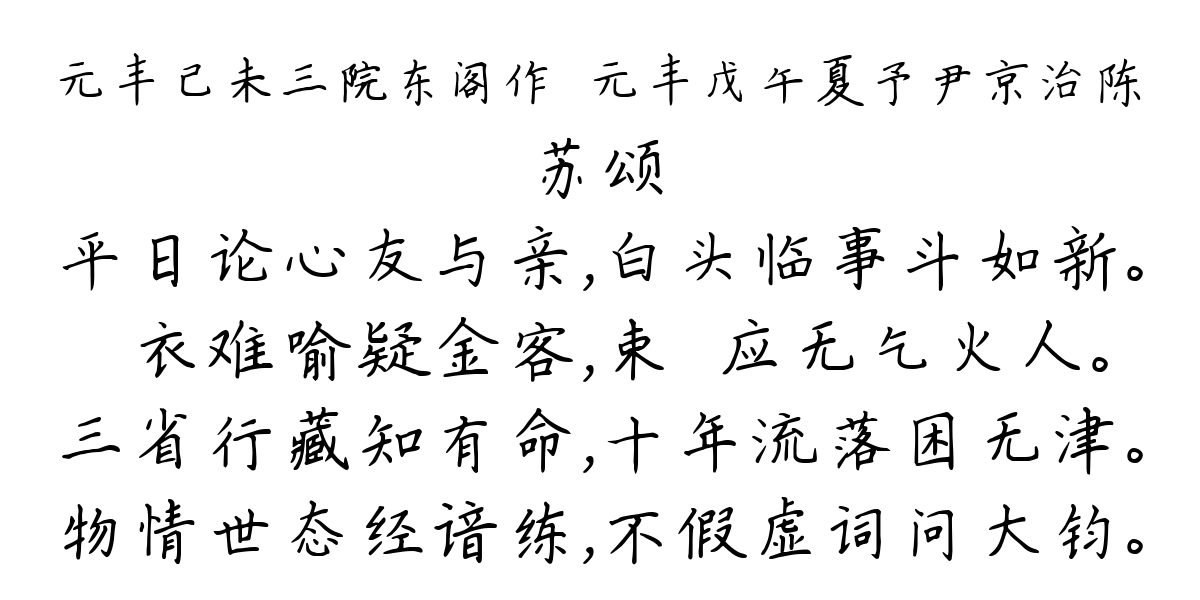 元丰己未三院东阁作 元丰戊午夏予尹京治陈
苏颂
平日论心友与亲,白头临事斗如新。
衣难喻疑金客,束 应无乞火人。
三省行藏知有命,十年流落困无津。
物情世态经谙练,不假虚词问大钧。